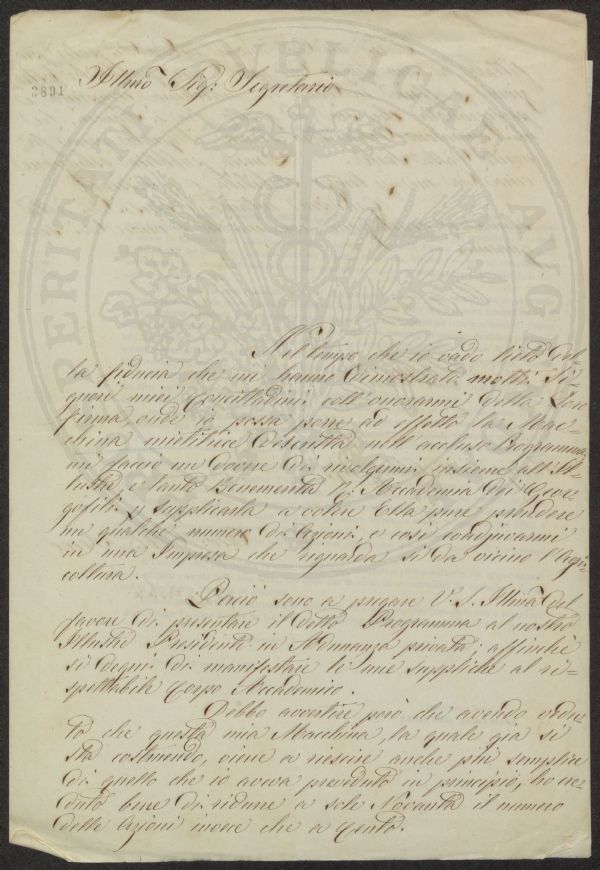 2894
Illmo Sig: Segretario
Nel tempo che io vado lieto del-
la fiducia che mi hanno dimostrata molti Si-
gnori miei Concittadini coll'onorarmi della Loro
firma, onde io possa porre ad effetto la Mac-
china mietitrice descritta nell'accluso Programma,
mi faccio un dovere di rivolgermi insieme all'Il-
lustre e tanto Benemerita R. Accademia dei Geor-
gofili e supplicarla a volere Ella pure prendere
un qualche numero di Azioni, e così coadjuvarmi
in una Impresa che riguarda sì da vicino l'Agri-
coltura.
Perciò sono a pregare V. S. Illma del
favore di presentare il detto Programma al nostro
Illustre Presidente in Adunanza privata; affinchè
si degni di manifestare le mie suppliche al ri-
spettabile Corpo Accademico.
Debbo avvertire però che avendo vedu-
to che questa mia Macchina, la quale già si
sta costruendo, viene a riescire anche più semplice
di quello che io aveva preveduto in principio, ho cre-
duto bene di ridurre a sole Novanta il numero
delle Azioni invece che a Cento.